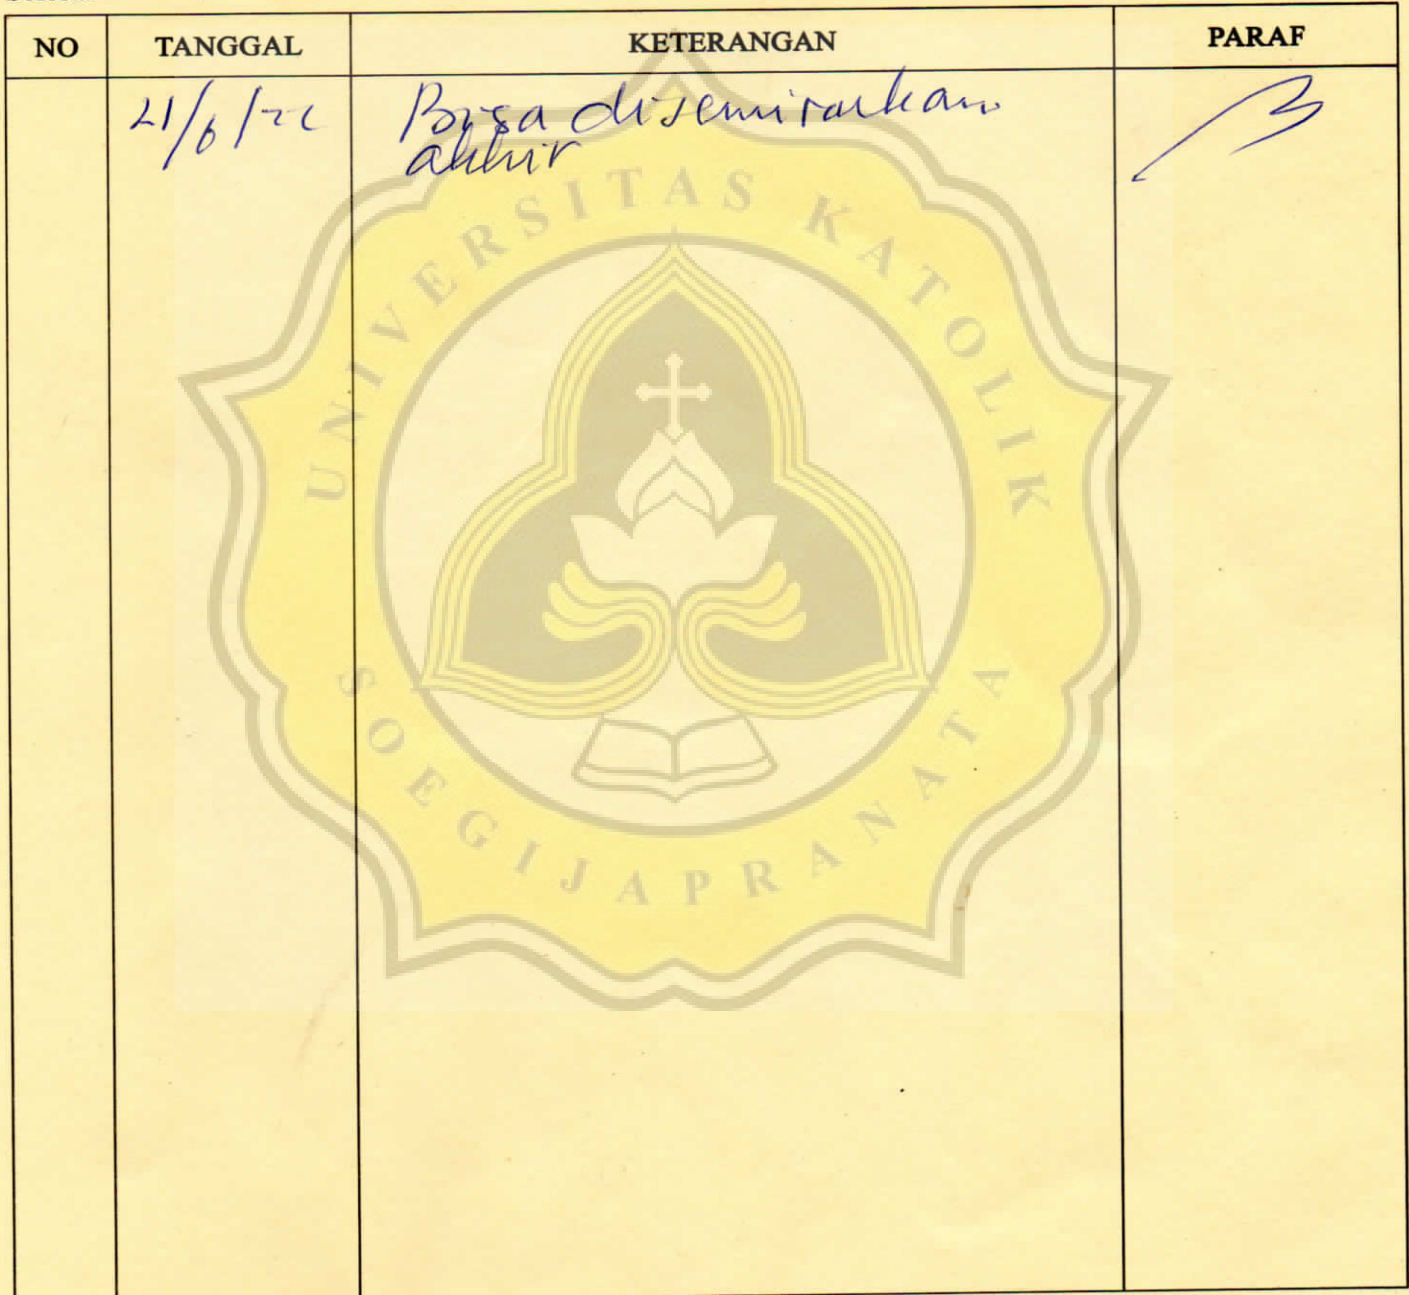 NO TANGGAL KETERANGAN PARAF
21/6/22 Bisa disemirarkan
akhir
UNIVERSITAS KATOLIK
SOEGIJAPRANATA